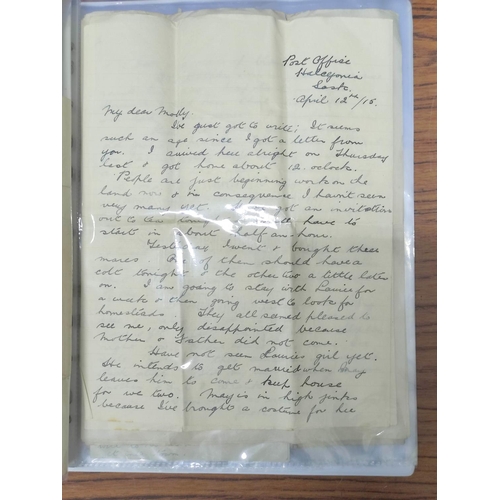 Post Office
Halcyonia
Sask.
April 12th/15.
My dear Molly.
I've just got to write; It seems
such an age since I got a letter from
you. I arrived here alright on Thursday
last & got home about 12. oclock.
People are just beginning work on the
land now & in consequence I havnt seen
very many yet. I have got an invitation
out to tea have to
start in about half an-hour.
Yesterday I went & bought three
mares. One of them should have a
colt tonight & the other two a little later
on. I am going to stay with Laurie for
a week & then going west to look for
homesteads. They all seemed pleased to
see me, only disappointed because
Mother & Father did not come.
Have not seen Lauries girl yet.
He intends to get married when May
leaves him to come & keep house
for we two. May is in high jinks
because I've brought a costume for her